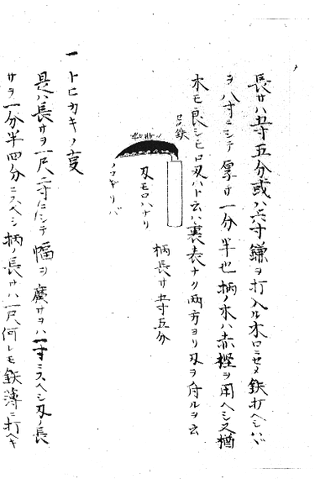 長サハ五寸五分或ハ六寸鎌ヲ打入ル木口ニセメ鉄打ヘシハバ
ヲ八寸ニシテ厚サ一分半也柄ノ木ハ赤樫ヲ用ヘシ又楢
木モ良シモロ刃ハト云ハ裏表ナリ両方ヨリ刃ヲ付ルヲ云
口鉄
刃モロハナリ
柄長サ五寸五分
一トビカキノ㕝
是ハ長サヲ一尺二寸ニシテ幅ヲ廣サヲハ一寸ニスヘシ刃ノ長
サヲ一分半四分ニスヘシ柄ノ長サハ一尺何レモ鉄薄ニ打ヘキ